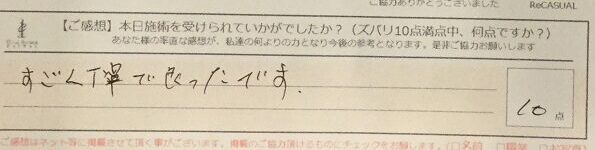 ご協力ありがとうございました
ReCASUAL
【ご感想】本日施術を受けられていかがでしたか？（ズバリ10点満点中、何点ですか？）
あなた様の率直な感想が、私達の何よりの力となり今後の参考となります。是非ご協力お願いします
すごく丁寧で良ったです.
10点
ご感想はネット等に掲載させて頂く事がございます。掲載のご協力頂けるものにチェックをお願します。（□名前 □職業 □お写真）